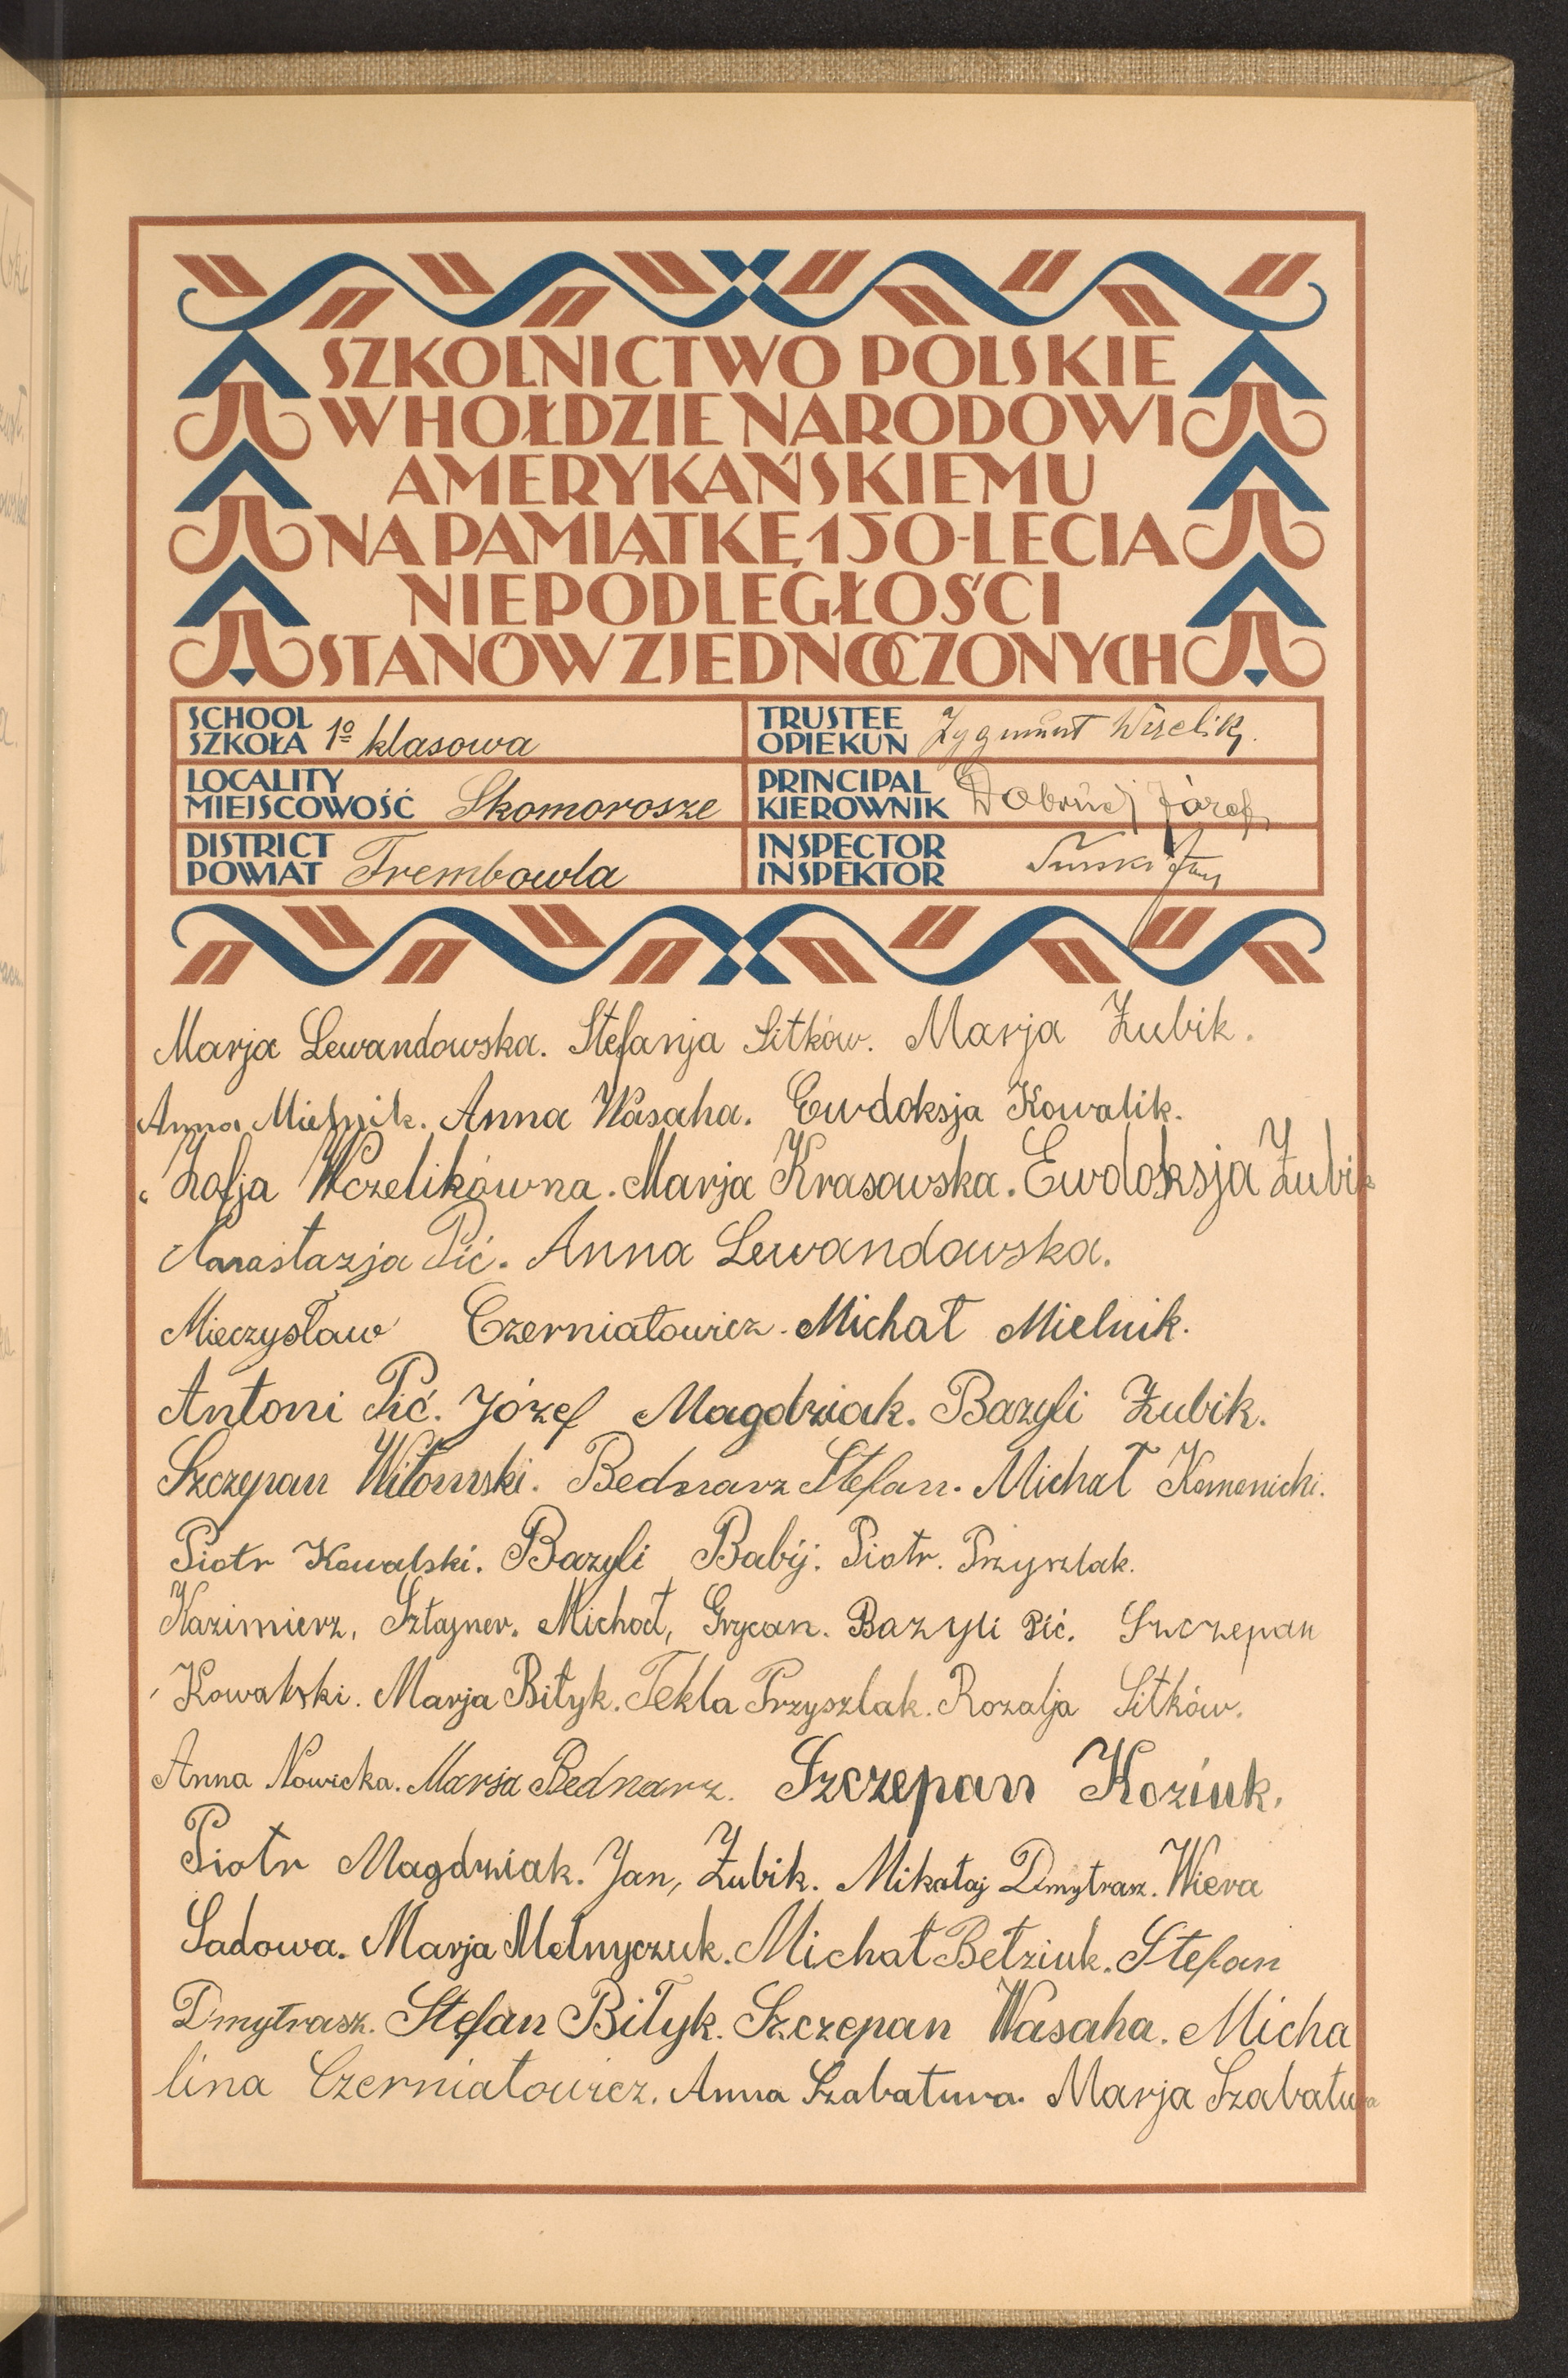 SZKOLNICTWO POLSKIE
W HOŁDZIE NARODOWI
AMERYKAŃSKIEMU
NA PAMIĄTKĘ 150-LECIA
NIEPODLEGŁOŚCI
STANÓW ZJEDNOCZONYCH
SCHOOL
SZKOŁA 1º klasowa
TRUSTEE
OPIEKUN Zygmunt
LOCALITY
MIEJSCOWOŚĆ Skomorosze
PRINCIPAL
KIEROWNIK Józef
DISTRICT
POWIAT Trembowla
INSPECTOR
INSPEKTOR
Marja Lewandowska. Stefanja Sitków. Marja Żubik.
Anna Mielnik. Anna Wasaha. Ewdoksja Kowalik.
Zofja Wczelikówna. Marja Krasowska. Ewdoksja Żubik
Anastazja Pić. Anna Lewandowska.
Mieczysław Czerniatowicz. Michał Mielnik.
Antoni Pić. Józef Magdziak. Bazyli Żubik.
Szczepan Witowski. Bednarz Stefan. Michał Komenicki.
Piotr Kowalski. Bazyli Babij. Piotr. Przyszlak.
Kazimierz, Sztajner. Michał, Grycan. Bazyli Pić. Szczepan
Kowalski. Marja Biłyk. Tekla Przyszlak. Rozalja Sitków.
Anna Nowicka. Marja Bednarz. Szczepan Koziuk.
Piotr Magdziak. Jan, Żubik. Mikołaj Dmytrasz. Wiera
Sadowa. Marja Melnyczuk. Michał Betziuk. Stefan
Dmytrasz. Stefan Biłyk. Szczepan Wasaha. Micha
lina Czerniatowicz. Anna Szabatura. Marja Szabatura